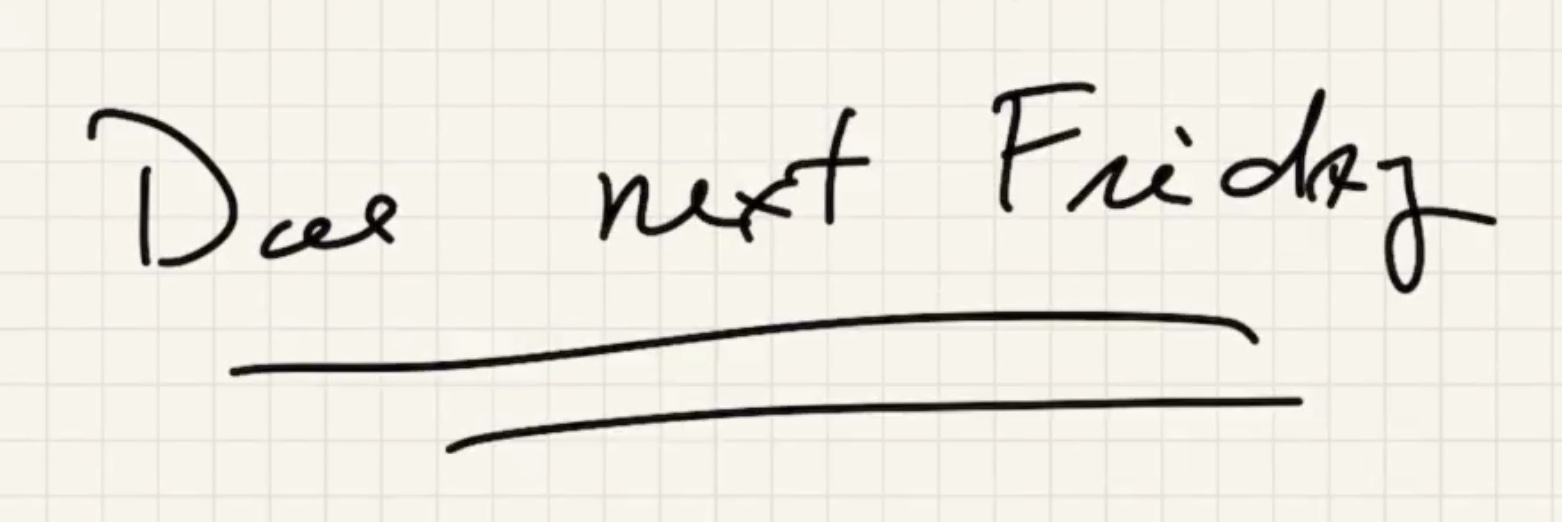 Due next Friday